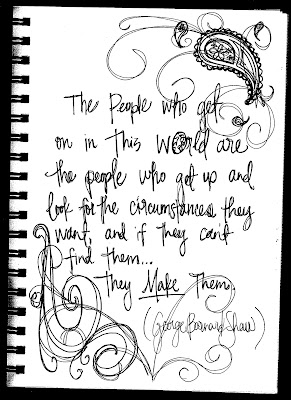 The People who get
on in this World are
the people who get up and
look for the circumstances they
want, and if they can't
find them...
They Make Them.
(George Bernard Shaw)